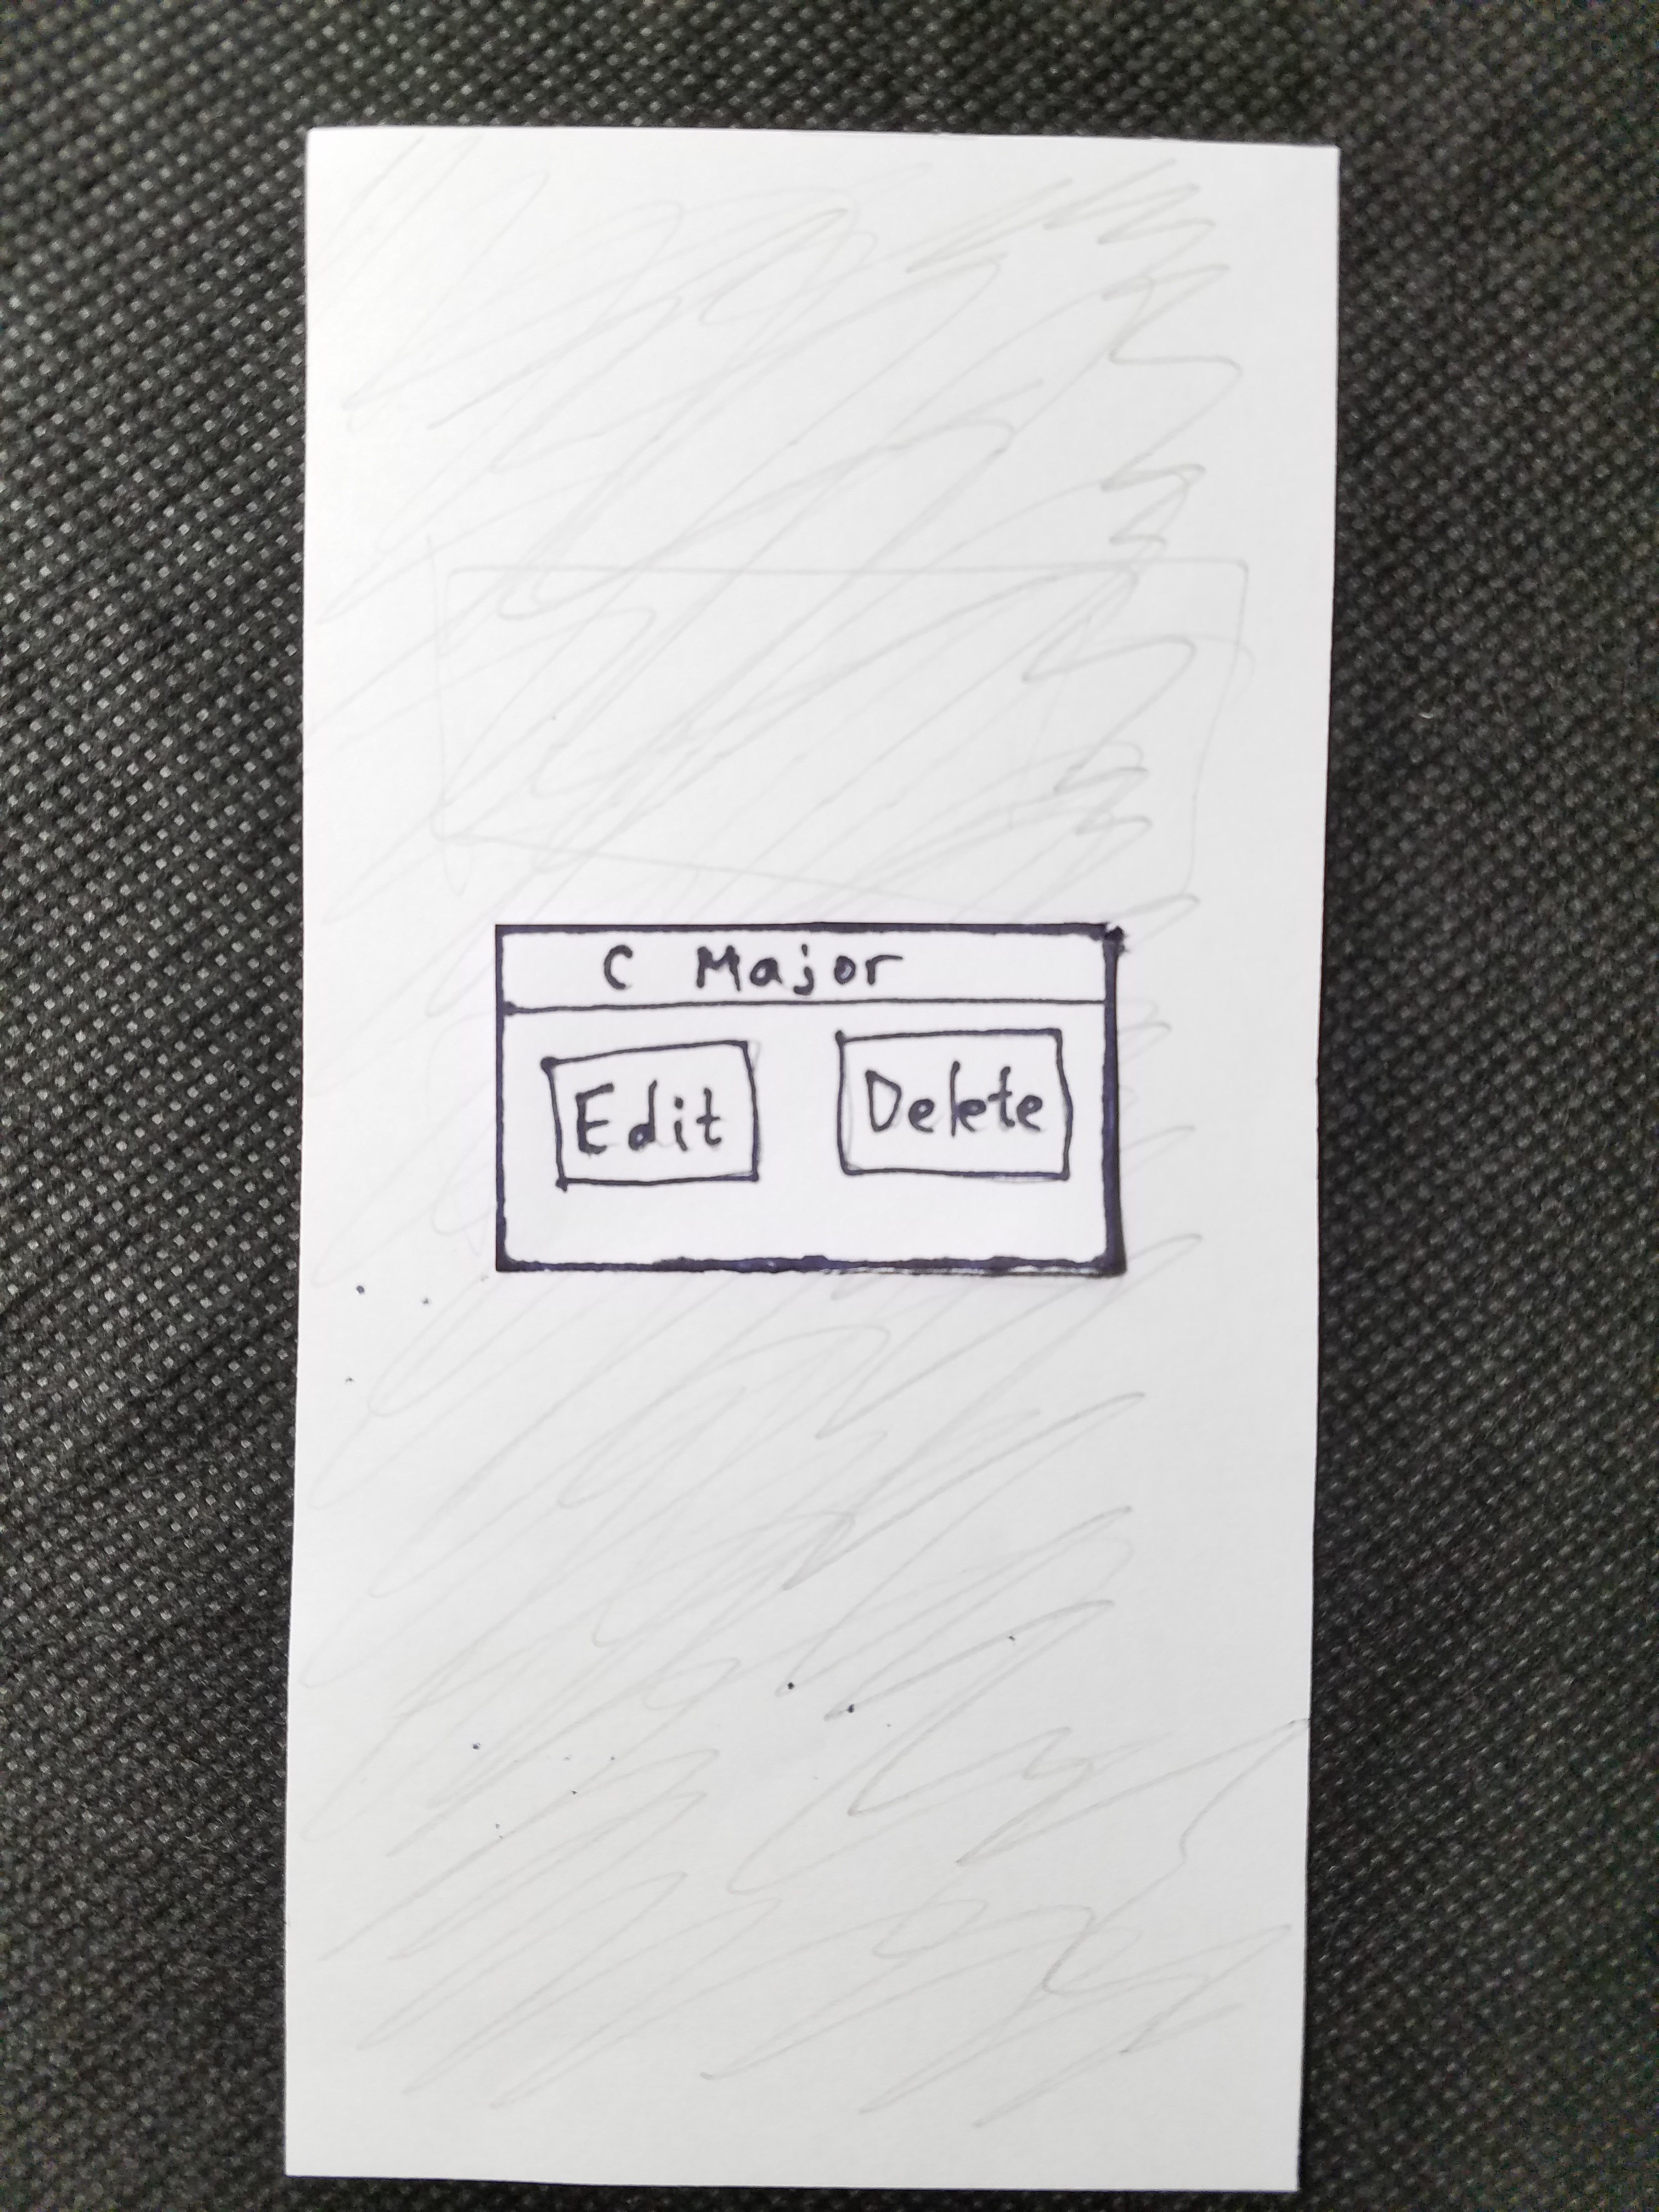 C Major
Edit Delete